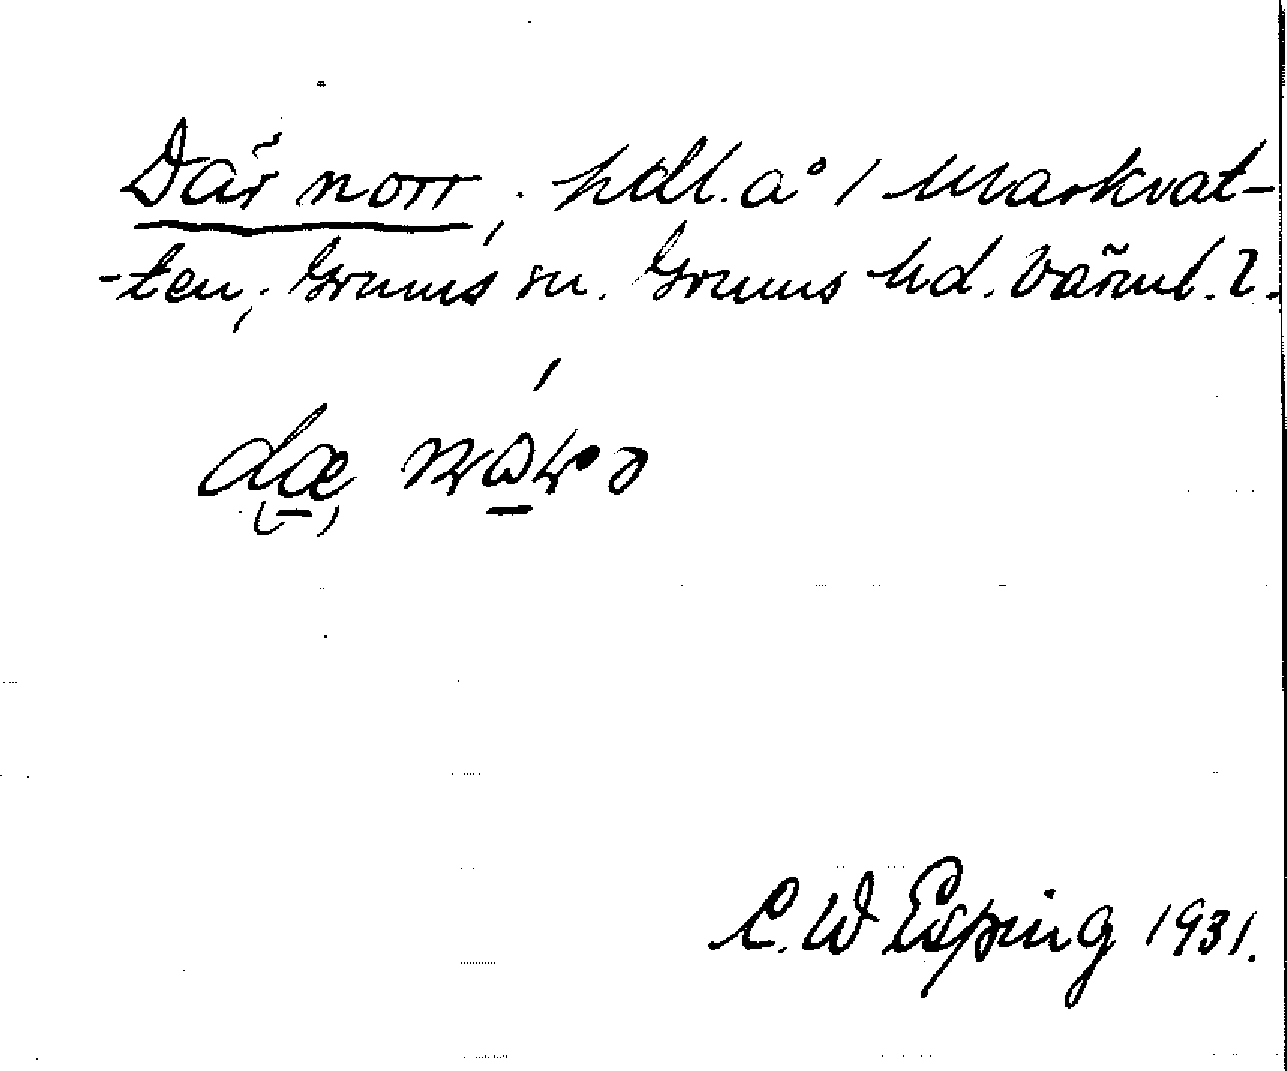 Där norr; hdl. å 1 Markvat-
-ten; Grums sn. Grums hd. Värml. l.
C. W Esping 1931.